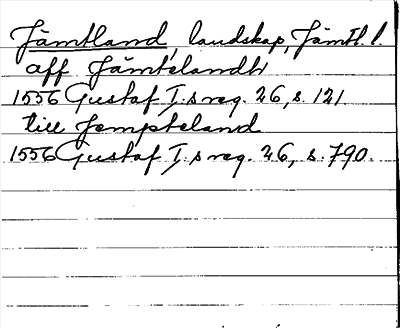 Jämtland, landskap, Jämtl. l.
aff Jämtelandh
1556 Gustaf I:s reg. 26, s. 121
till Jempteland
1556 Gustaf I:s reg. 26, s. 790.